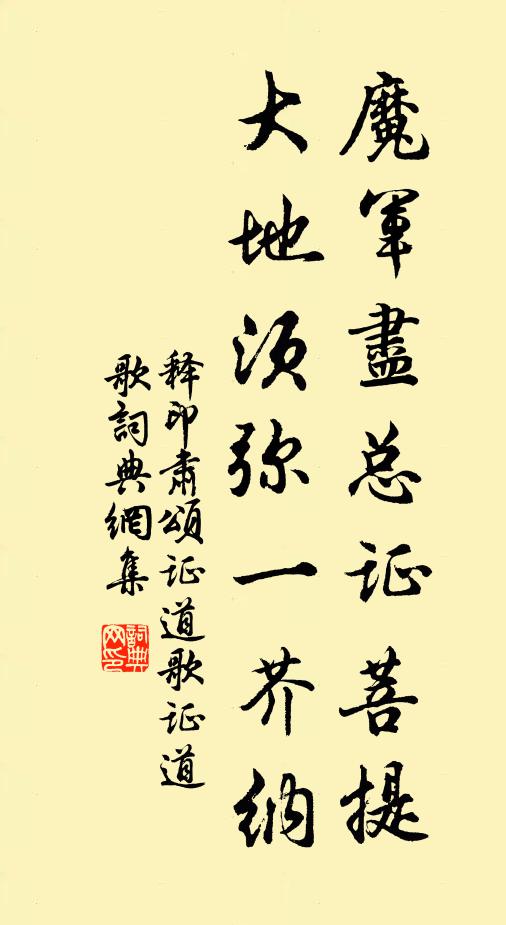 魔军盡总证菩提
大地须弥一芥纳
释印肃颂证道歌证道
歌詞典網集
詞典
网印